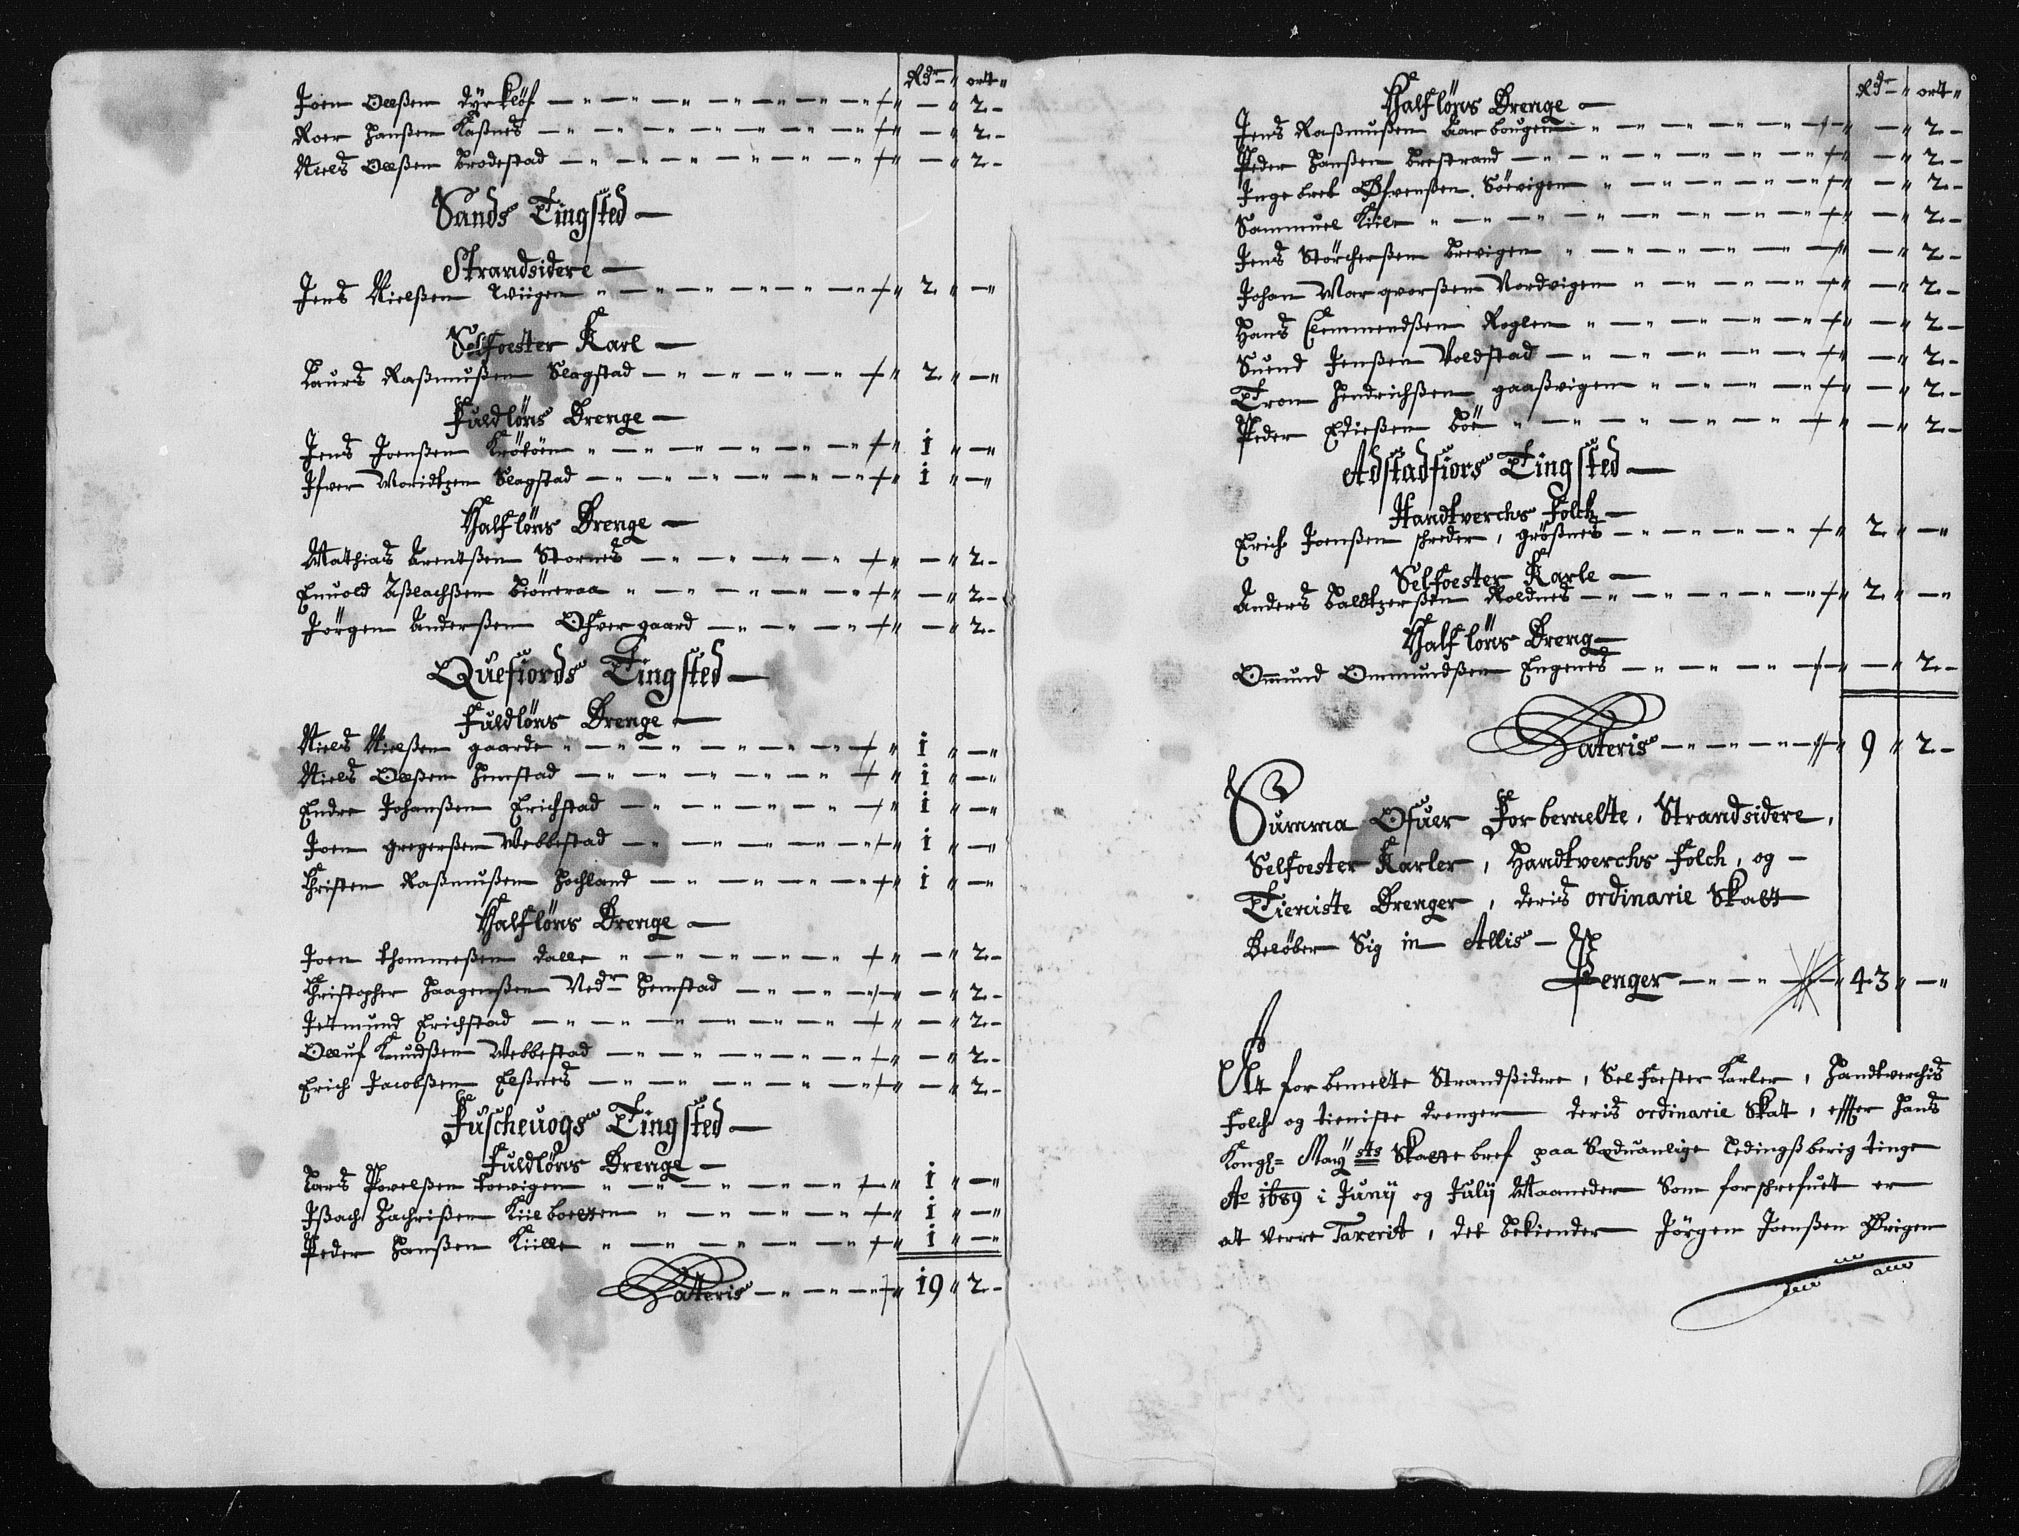 Rdr " ort "
Joen Olleßen dyrkløf — " — " — " — — 2 -
Roer Hanßen Kaßnes — " — " — " — — 2 -
Niels Olleßen Brodestad — " — " — " — — 2 -
Sands Tingsted —
Strandsidere —
Jens Nielßen Wiigen " — " — " — 2 " — "
Selfoester Karl —
Laurs Raßmußen Slagstad — " — " — 2 " — "
Fuldløns Drenge —
Jens Joenßen Krötöen " — " — " — 1 " — "
Ifver Moridtzen Slagstad — " — " — 1 " — "
Halfløns Drenge —
Mathias Arentßen Stornes — " — " — — 2 -
Enuold Aßlachßen Biöneraa " — " — — 2 -
Jörgen Anderßen Ofvergaard — " — — 2 -
Quefiords Tingsted —
Fuldløns Drenge —
Niels Nielßen gaarde " — " — " — 1 " — "
Niels Olleßen Hemstad — " — " — 1 " — "
Endre Johanßen Erichstad — " — " — 1 " — "
Joen gregerßen Webbestad — " — " — 1 " — "
Christen Raßmußen Hochland — " — " — 1 " — "
Halfløns Drenge —
Joen Thommeßen Dalle " — " — " — — 2 -
Christopher Haagenßen Nedr Hemstad — " — — 2 -
Jetmund Erichstad — " — " — " — — 2 -
Olluf Knudßen Webbestad — " — " — — 2 -
Erich Jacobßen Elßnes — " — " — — 2 -
Fuscheuogs Tingsted —
Fuldløns Drenge —
Lars Povelßen Toevigen " — " — " — 1 " — "
Ißach Zachrißen Kiilboetten " — " — 1 " — "
Peder Hanßen Kiille " — " — " — 1 " — "
Lateris — " — " — 19 " 2 -
Rdr " ort "
Halfløns Drenge —
Jens Raßmußen Aarbougen " — " — " — — 2 -
Peder Hanßen Brestrand — " — " — — 2 -
Ingebret Ofvenßen Söevigen " — " — — 2 -
Sammuel Kiile " — " — " — — 2 -
Jens Störcherßen Brevigen " — " — — 2 -
Johan Marqvorßen Nordvigen " — " — — 2 -
Hans Clemmendßen Roglen " — " — — 2 -
Suend Jenßen Voldstad — " — " — — 2 -
Tron Hendrichßen gaaßvigen " — " — — 2 -
Peder Edießen Böe " — " — " — — 2 -
Adstadfiors Tingsted —
Handtverchs Folch —
Erich Joenßen schreder, größnes — " — " — 2 " — "
Selfoester Karle —
Anders Baldtzerßen Roldnes — " — " — 2 " — "
Halfløns Dreng —
Ommund Ommundßen Engenes — " — " — — 2 -
Lateris — " — " — 9 " 2 -
Summa Ofuer Forbemelte, Strandsidere,
Selfoester Karler, Handtverchs Folch, og —
Tieniste Drenger, deris ordinarie Skatt
Beløber Sig in Allis —
Penger — " — " — 43 " — "
At forbemelte Strandßidere, Selfoester Karler, Handtverchis
Folch og tieniste drenger deris ordinarie Skat, effter Hans
Kongl= May sts Skatte bref paa Sæduanlige Ledingßberig tinge
Ao 1689 i Junij og Julij Maaneder Som forschrefuet er
at verre Taxerit, det bekiender Jörgen Joenßen Örigen